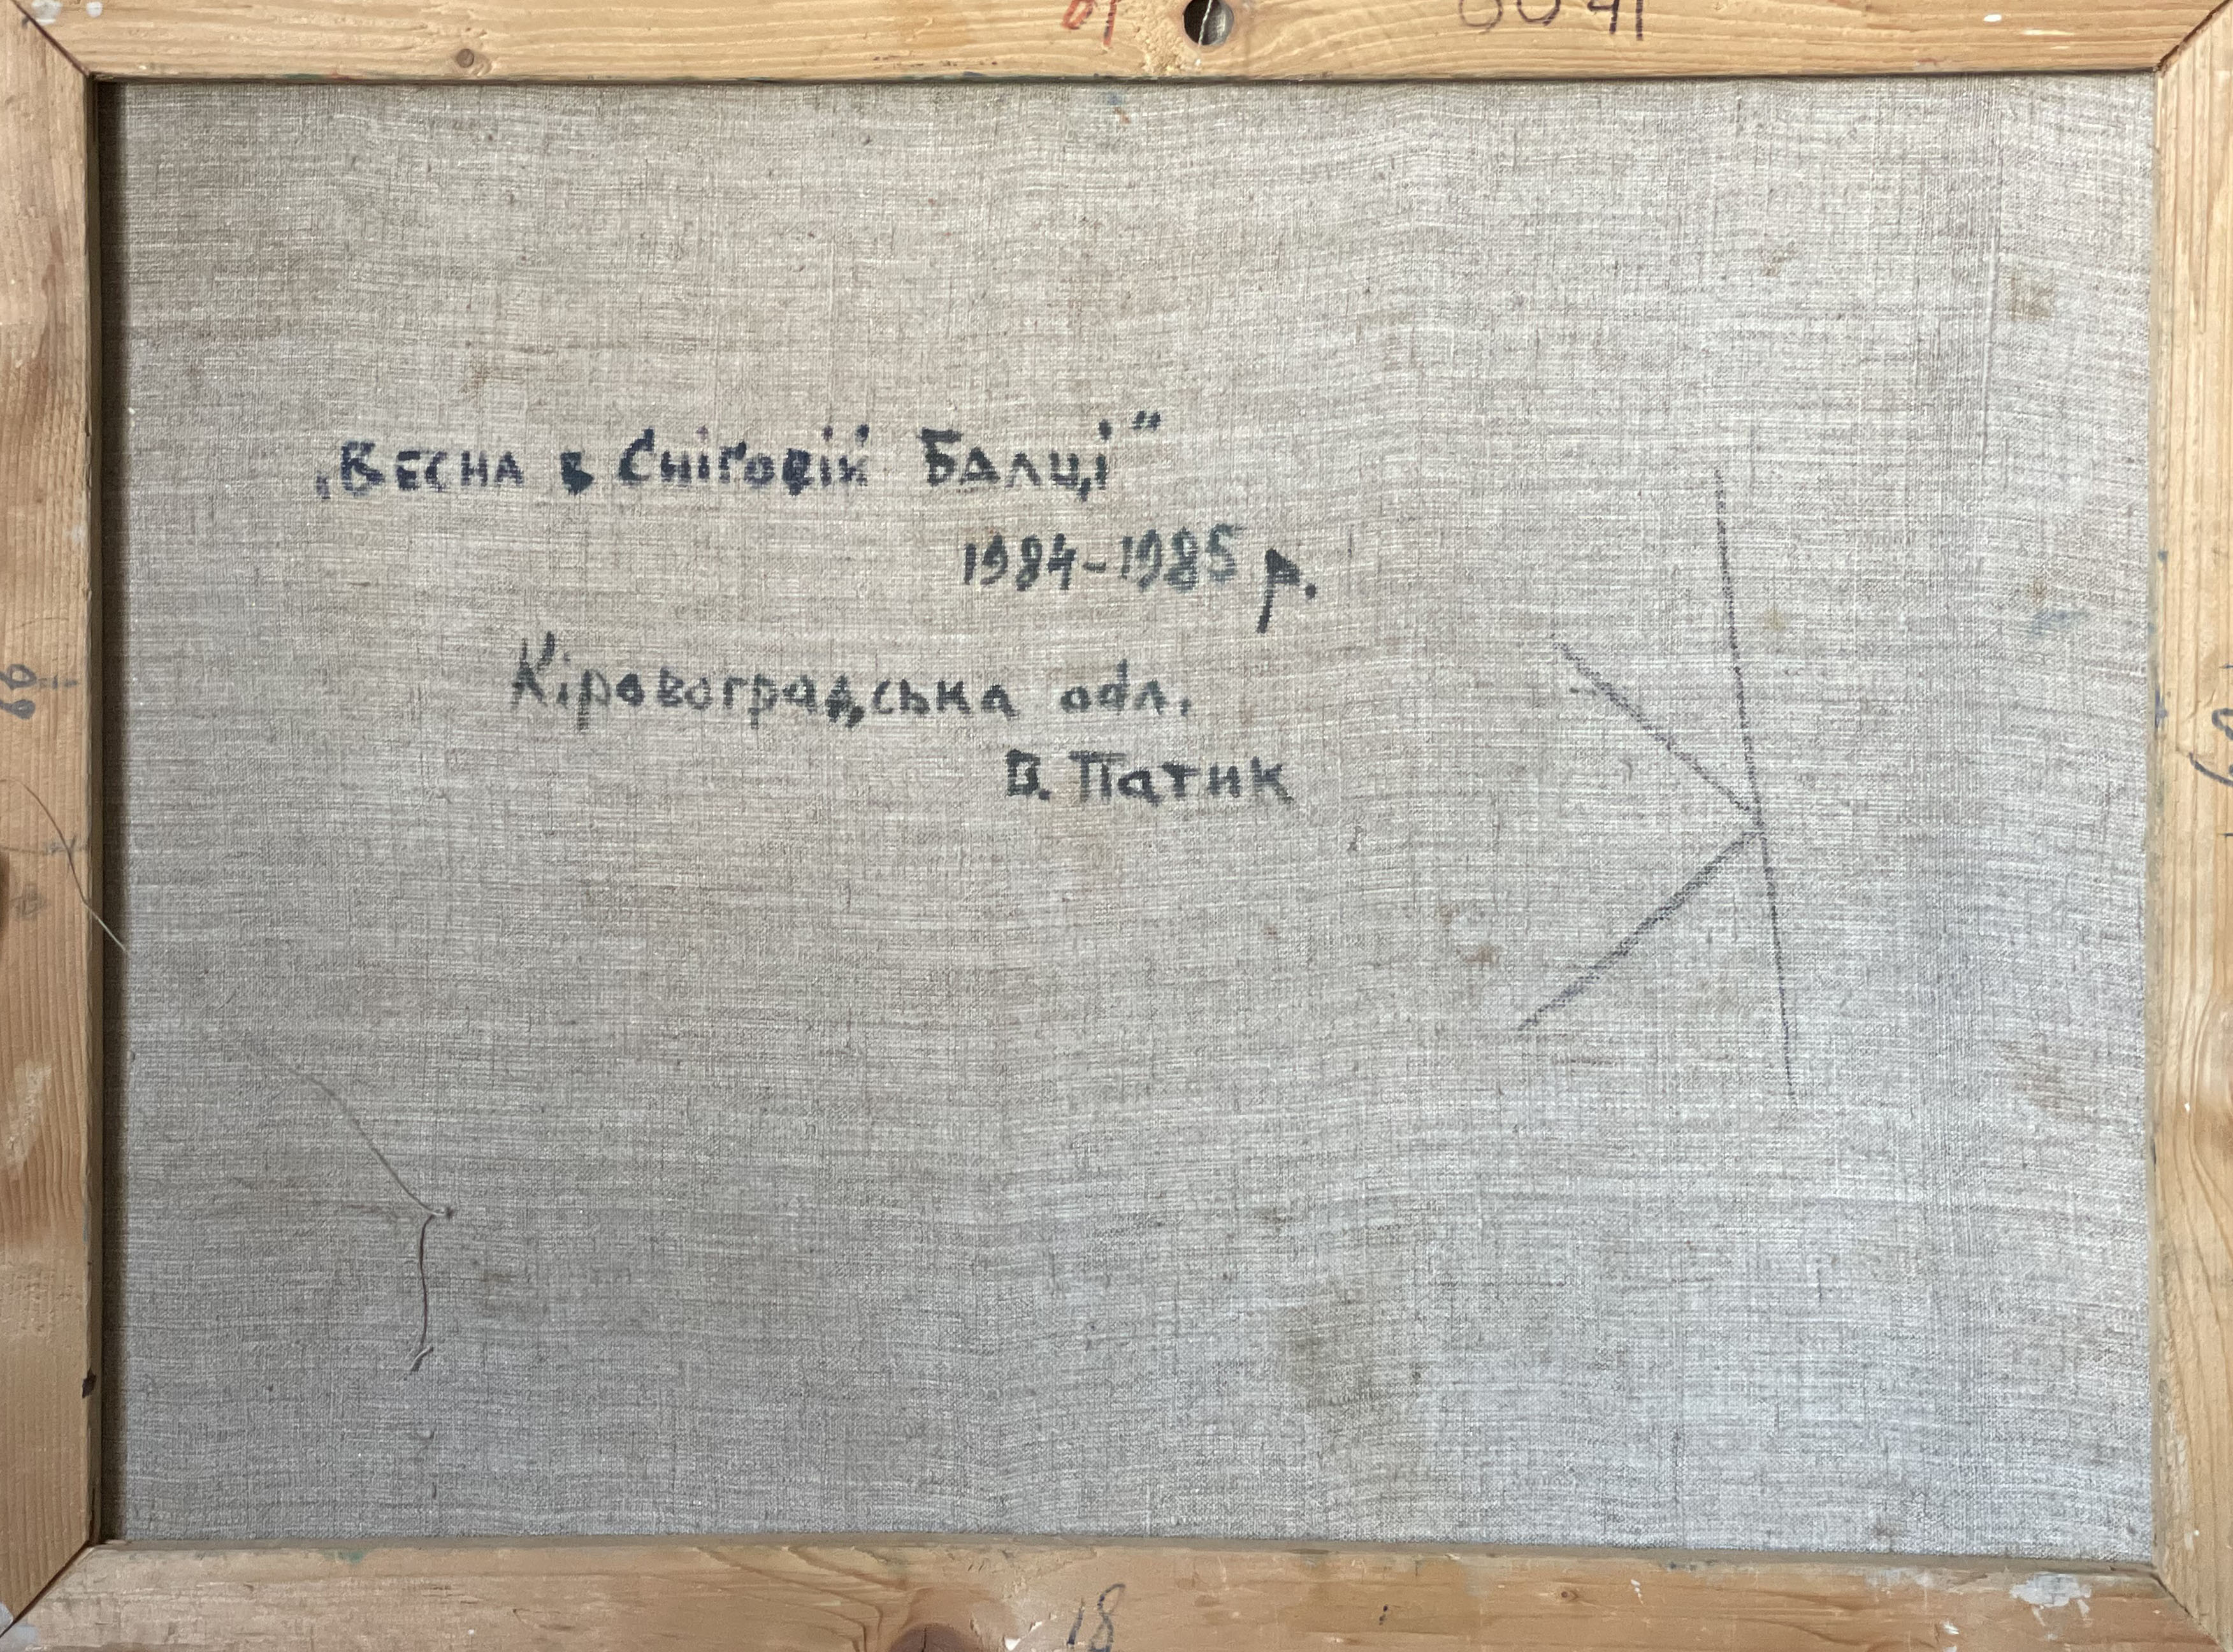 „Весна в Сніговій Балці"
1984-1985 р.
Кіровоградська обл.
В. Патик
18